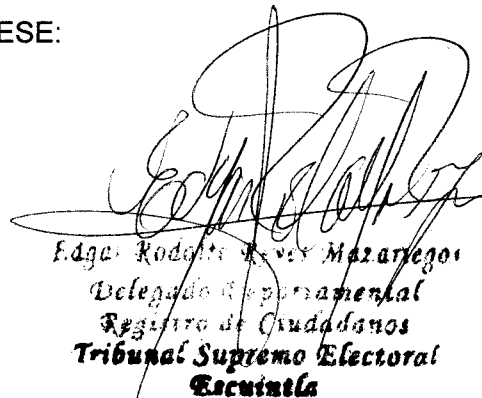 ESE:
Edgar Rodolfo Reyes Mazariegos
Delegado Departamental
Registro de Ciudadanos
Tribunal Supremo Electoral
Escuintla